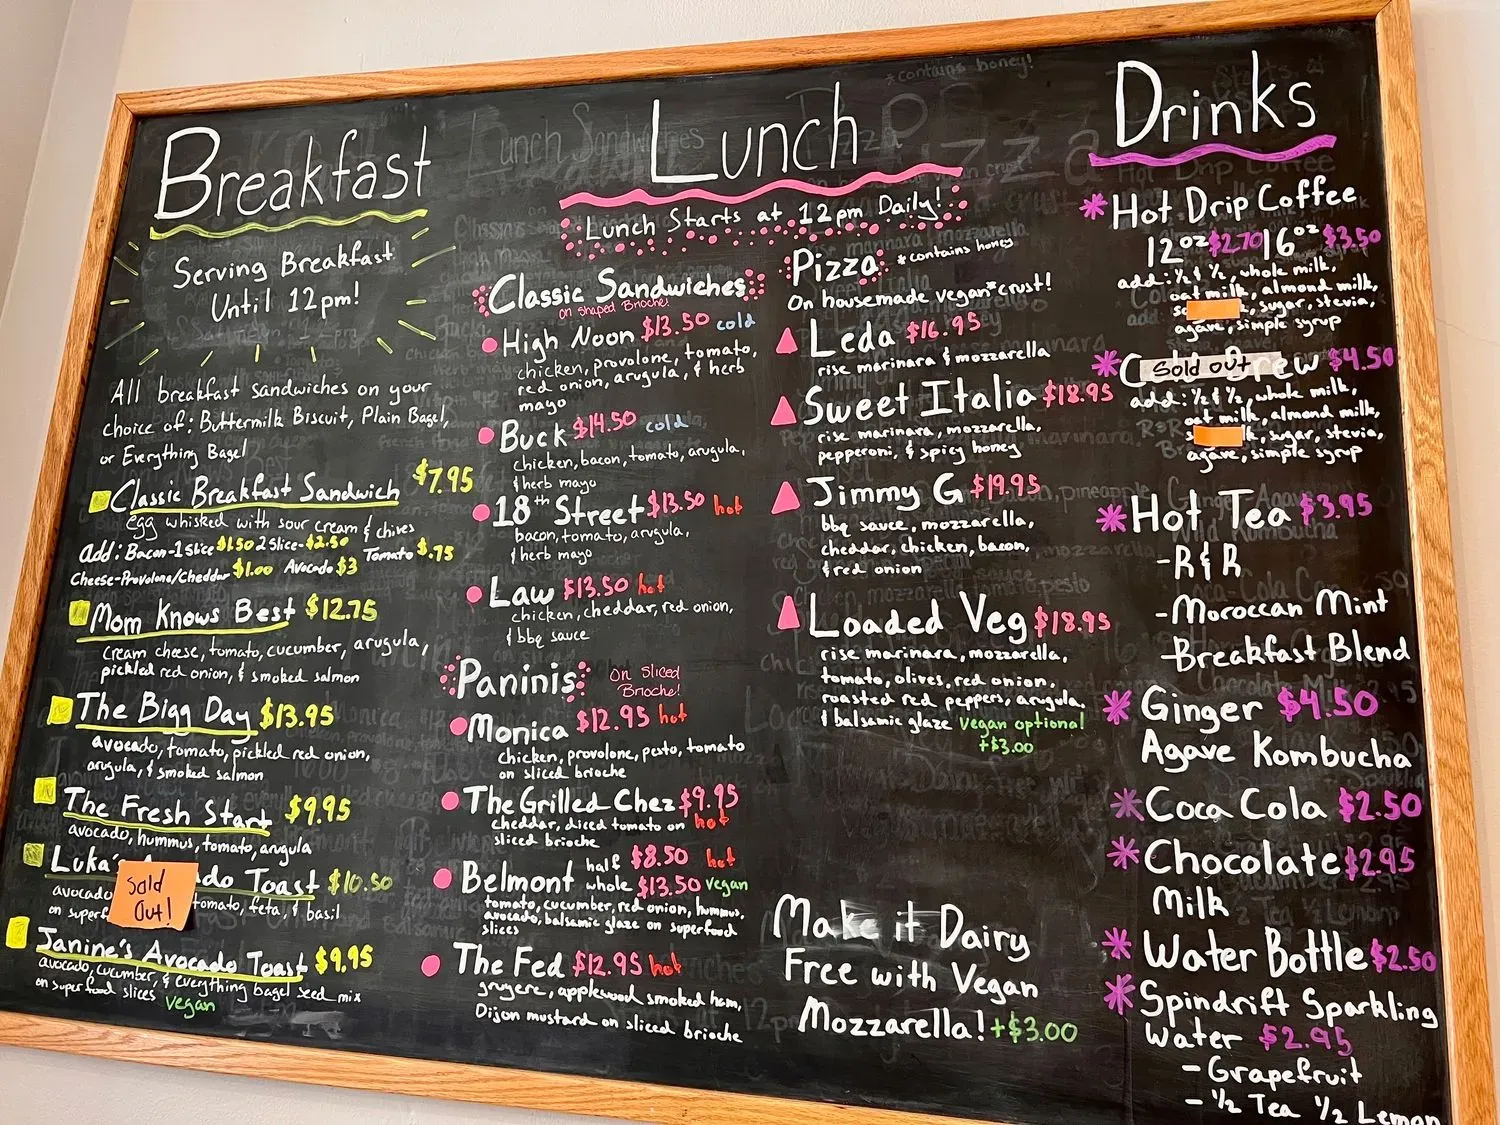 Breakfast
Serving Breakfast
Until 12pm!
All breakfast sandwiches on your
choice of: Buttermilk Biscuit, Plain Bagel,
or Everything Bagel
Classic Breakfast Sandwich $7.95
egg whisked with sour cream & chives
add: Bacon-1 Slice $1.50 2 Slice-$2.50 Tomato $.75
Cheese-Provolone/Cheddar $1.00 Avocado $3
Mom Knows Best $12.75
cream cheese, tomato, cucumber, arugula,
pickled red onion, & smoked salmon
The Bigg Day $13.95
avocado, tomato, pickled red onion,
arugula, & smoked salmon
The Fresh Start $9.95
avocado, hummus, tomato, arugula
Luka's Toast $10.50
avocado tomato, feta, & basil
on
Sold
Out!
Janine's Avocado Toast $9.95
avocado, cucumber, & everything bagel seed mix
on superfood slices vegan
Lunch
Lunch Starts at 12pm Daily!
Classic Sandwiches
on shaped Brioche!
High Noon $13.50 cold
chicken, provolone, tomato,
red onion, arugula, & herb
mayo
Buck $14.50 cold
chicken, bacon, tomato, arugula,
& herb mayo
18th Street $13.50 hot
bacon, tomato, arugula,
& herb mayo
Law $13.50 hot
chicken, cheddar, red onion,
& bbq sauce
Paninis on Sliced
Brioche!
Monica $12.95 hot
chicken, provolone, pesto, tomato
on sliced brioche
The Grilled Chez $9.95
cheddar, diced tomato on hot
sliced brioche
half $8.50 hot
Belmont whole $13.50 vegan
tomato, cucumber, red onion, hummus,
avocado, balsamic glaze on superfood
slices
The Fed $12.95 hot
gruyere, applewood smoked ham,
Dijon mustard on sliced brioche
Pizza *contains honey
On housemade vegan* crust!
Leda $16.95
rise marinara & mozzarella
Sweet Italia $18.95
rise marinara, mozzarella,
pepperoni, & spicy honey
Jimmy G $19.95
bbq sauce, mozzarella,
cheddar, chicken, bacon,
& red onion
Loaded Veg $18.95
rise marinara, mozzarella,
tomato, olives, red onion,
roasted red peppers, arugula,
& balsamic glaze vegan optional
+$3.00
Make it Dairy
Free with Vegan
Mozzarella! +$3.00
Drinks
Hot Drip Coffee
12oz $2.70 16oz $3.50
add: ½ & ½, whole milk,
oat milk, almond milk,
sugar, stevia,
agave, simple syrup
Sold out $4.50
add: ½ & ½, whole milk,
oat milk, almond milk,
sugar, stevia,
agave, simple syrup
Hot Tea $3.95
-R & R
-Moroccan Mint
-Breakfast Blend
Ginger $4.50
Agave Kombucha
Coca Cola $2.50
Chocolate $2.95
Milk
Water Bottle $2.50
Spindrift Sparkling
Water $2.95
-Grapefruit
-½ Tea ½ Lemon